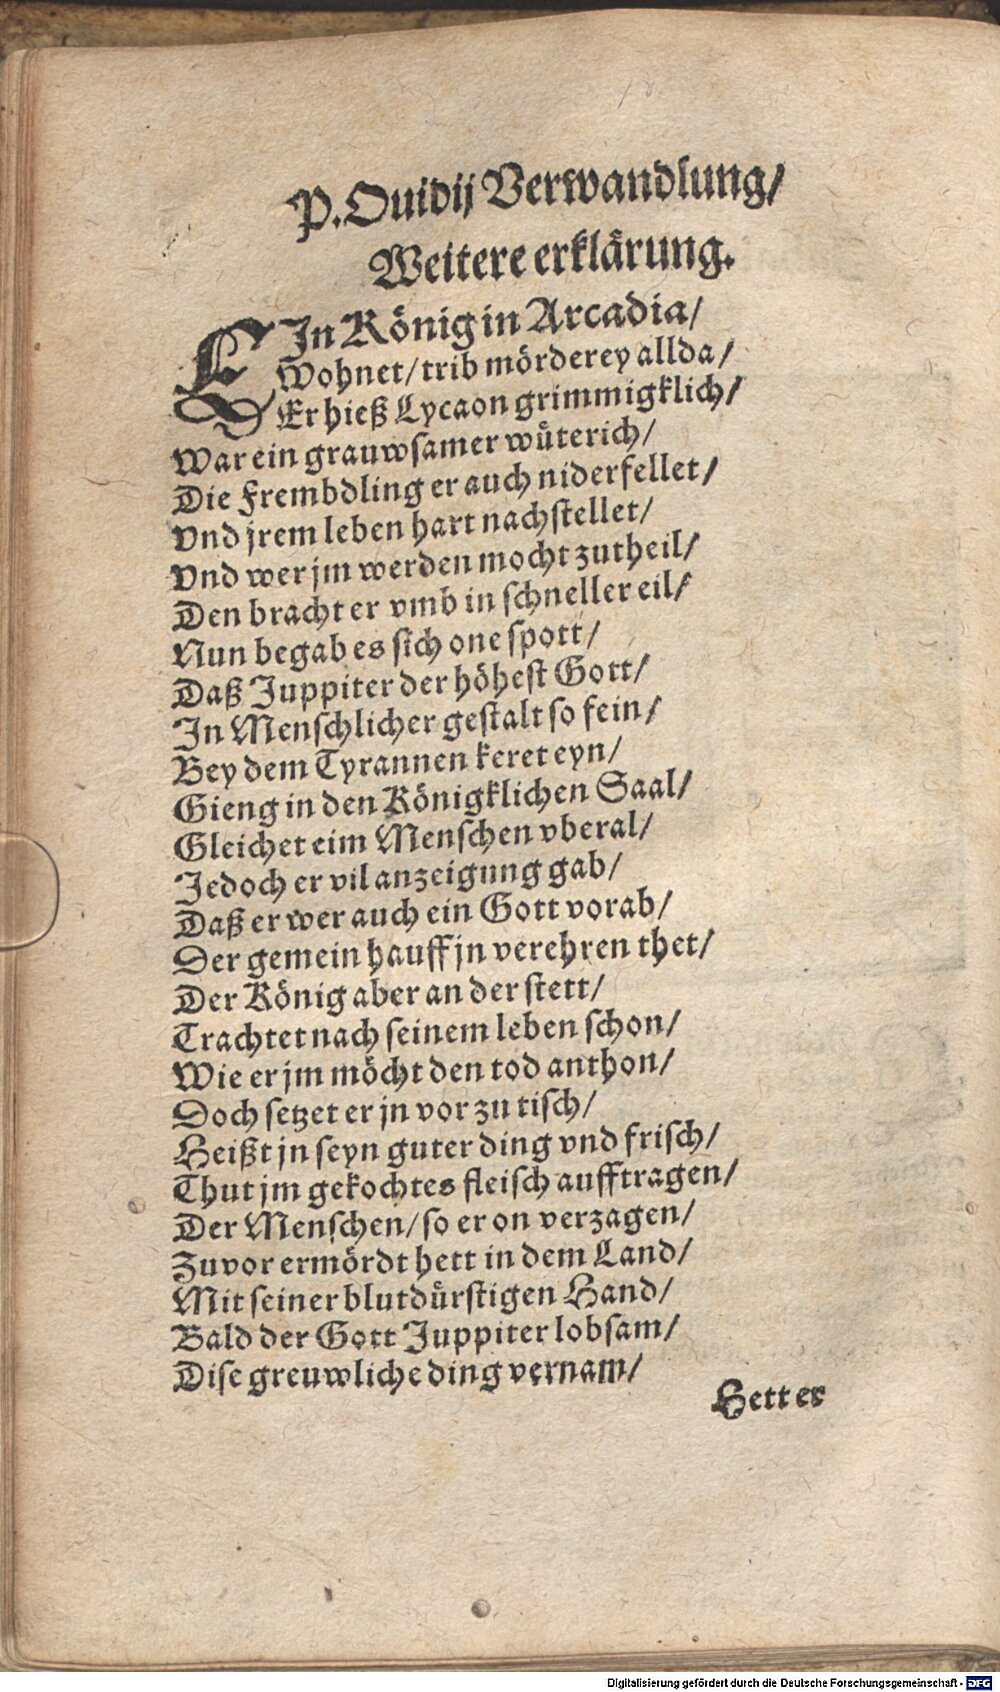 P. Ouidij Verwandlung/
Weitere erklärung.
EIn König in Arcadia/
Wohnet/ trib mörderey allda/
Er hieß Lycaon grimmigklich/
War ein grauwsamer wüterich/
Die Frembdling er auch niderfellet/
Vnd jrem leben hart nachstellet/
Vnd wer jm werden mocht zutheil/
Den bracht er vmb in schneller eil/
Nun begab es sich one spott/
Daß Juppiter der höhest Gott/
In Menschlicher gestalt so fein/
Bey dem Tyrannen keret eyn/
Gieng in den Königklichen Saal/
Gleichet eim Menschen vberal/
Jedoch er vil anzeigung gab/
Daß er wer auch ein Gott vorab/
Der gemein hauff jn verehren thet/
Der König aber an der stett/
Trachtet nach seinem leben schon/
Wie er jm möcht den tod anthon/
Doch setzet er jn vor zu tisch/
Heißt jn seyn guter ding vnd frisch/
Thut jm gekochtes fleisch aufftragen/
Der Menschen/ so er on verzagen/
Zuvor ermördt hett in dem Land/
Mit seiner blutdürstigen Hand/
Bald der Gott Juppiter lobsam/
Dise greuwliche ding vernam/
Hett er
Digitalisierung gefördert durch die Deutsche Forschungsgemeinschaft - DFG